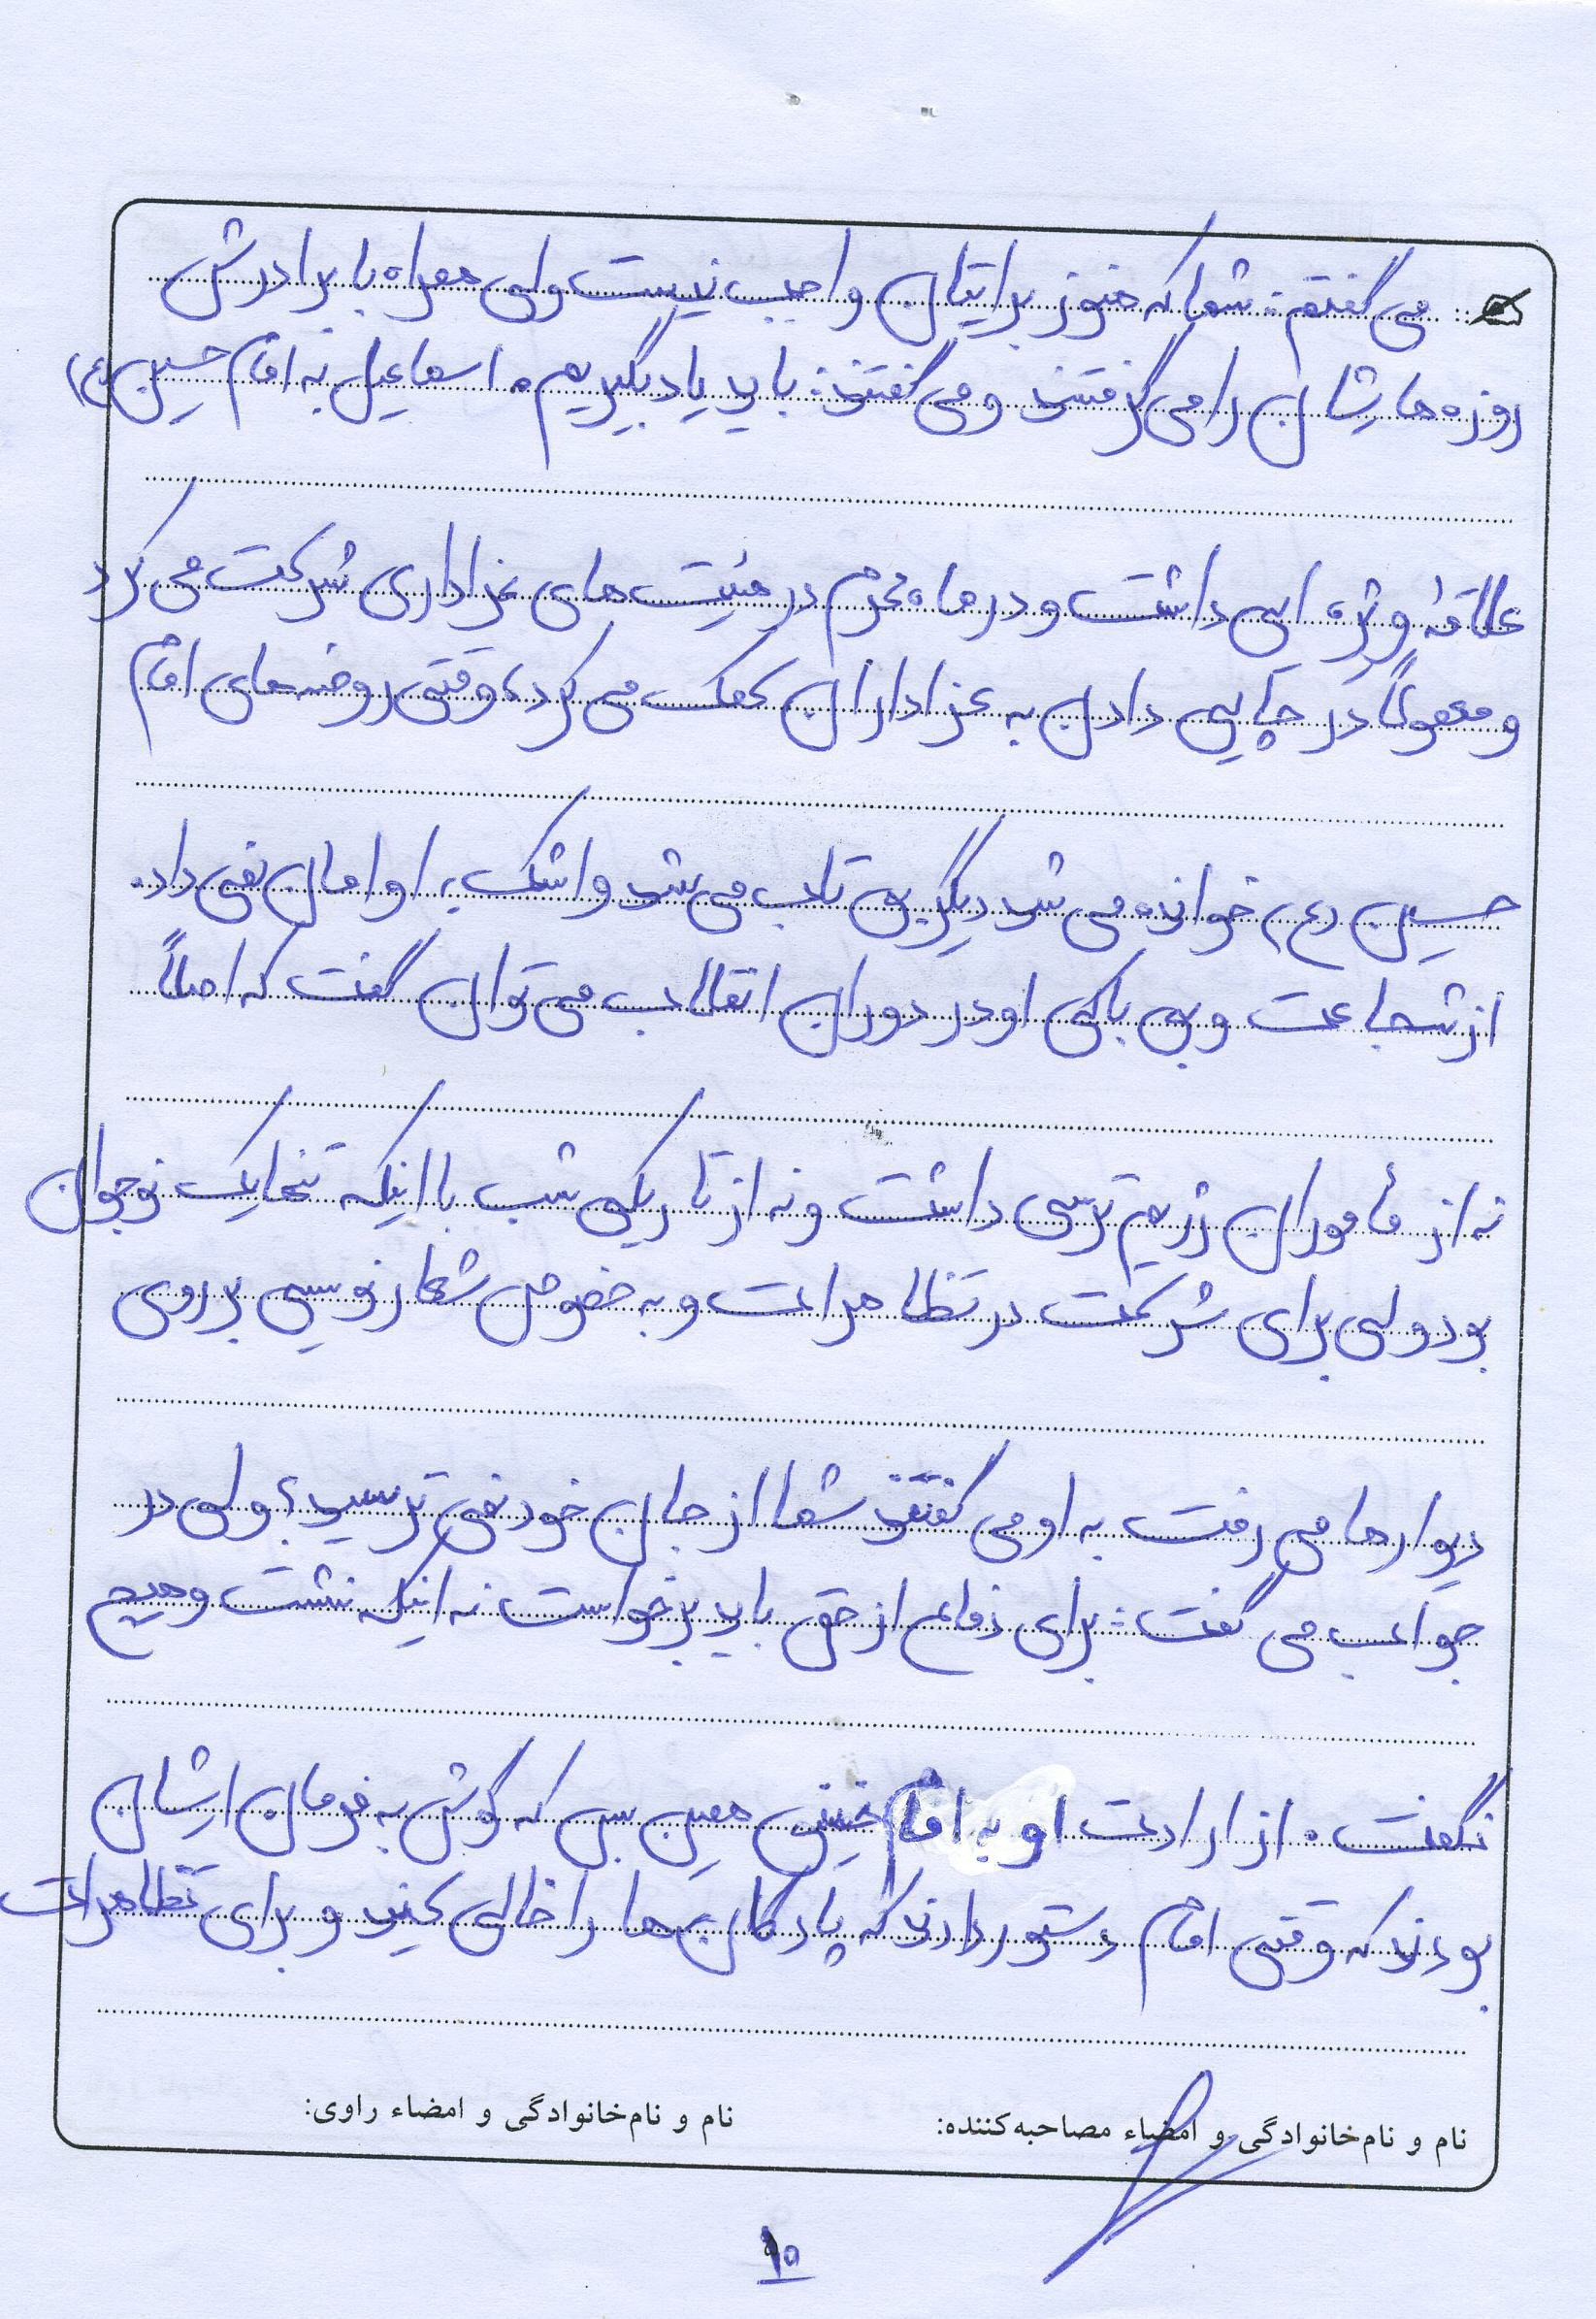 می گفتم: شما که هنوز برایتان واجب نیست ولی همراه با برادرش
روزه هایشان را می گرفتند و می گفتند: باید یاد بگیریم. اسماعیل به امام حسین (ع)
علاقهٔ ویژه ایی داشت و در ماه محرم در هئیت های عزاداری شرکت می کرد
و معمولاً در چایی دادن به عزاداران کمک می کرد، وقتی روضه های امام
حسین (ع) خوانده می شد دیگر بی تاب می شد و اشک، او امان نمی داد.
از شجاعت و بی باکی او در دوران انقلاب می توان گفت که اصلاً
نه از مأموران رژیم ترسی داشت و نه از تاریکی شب با اینکه تنها یک نوجوان
بود ولی برای شرکت در تظاهرات و به خصوص شعار نویسی بر روی
دیوارها می رفت به او می گفتند شما از جان خود نمی ترسید؟ ولی در
جواب می گفت: برای دفاع از حق باید برخواست نه اینکه نشست و هیچ
نگفت. از ارادت او به امام خمینی همین بس که گوش به فرمان ایشان
بودند که وقتی امام دستور دادند که پادگان ها را خالی کنید و برای تظاهرات
نام و نام‌خانوادگی و امضاء مصاحبه‌کننده: نام و نام‌خانوادگی و امضاء راوی:
۱۵